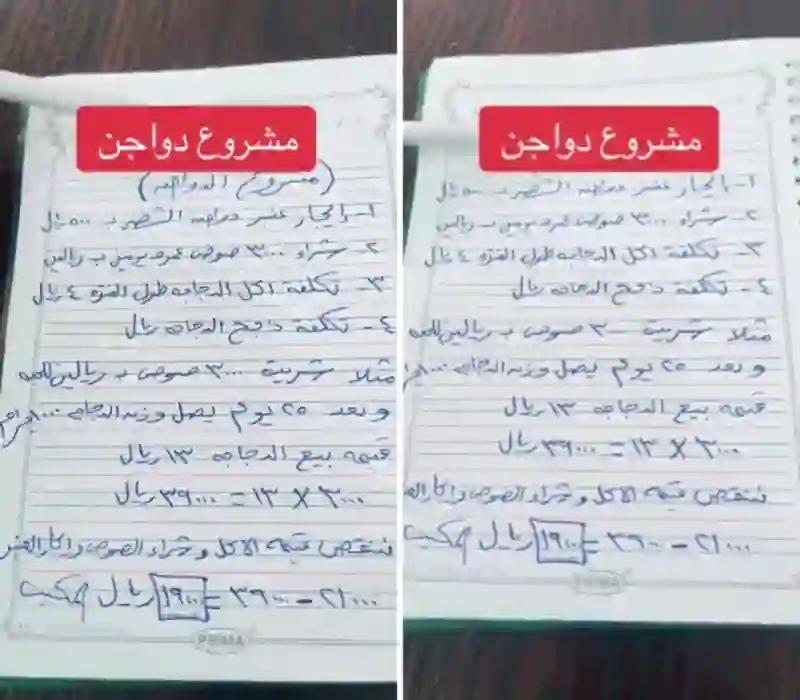 مشروع دواجن
(مشروع الدواجن)
١- إيجار عنبر دواجن الشهر بـ ٥٠٠٠ ريال
٢- شراء ٣٠٠٠ صوص عمره يومين بـ ريالين
٣- تكلفة اكل الدجاجه طول الفتره ٤ ريال
٤- تكلفة ذبح الدجاجه ريال
مثلا شريت ٣٠٠٠ صوص بـ ريالين للحبه
وبعد ٢٥ يوم يصل وزن الدجاجه ١٠٠٠ جرام
قيمه بيع الدجاجه ١٣ ريال
٣٠٠٠ X ١٣ = ٣٩٠٠٠ ريال
ننقص قيمه الاكل وشراء الصوص وايجار العنبر
٢١٠٠٠ - ٣٩٠٠٠ = ١٩٠٠٠ ريال مكسب
PRIMA
مشروع دواجن
١- إيجار عنبر دواجن الشهر بـ ٥٠٠٠ ريال
٢- شراء ٣٠٠٠ صوص عمره يومين بـ ريالين
٣- تكلفة اكل الدجاجه طول الفتره ٤ ريال
٤- تكلفة ذبح الدجاجه ريال
مثلا شريت ٣٠٠٠ صوص بـ ريالين للحبه
وبعد ٢٥ يوم يصل وزن الدجاجه ١٠٠٠
قيمه بيع الدجاجه ١٣ ريال
٣٠٠٠ X ١٣ = ٣٩٠٠٠ ريال
ننقص قيمه الاكل وشراء الصوص وايجار
٢١٠٠٠ - ٣٩٠٠٠ = ١٩٠٠٠ ريال مكسب
PRIMA